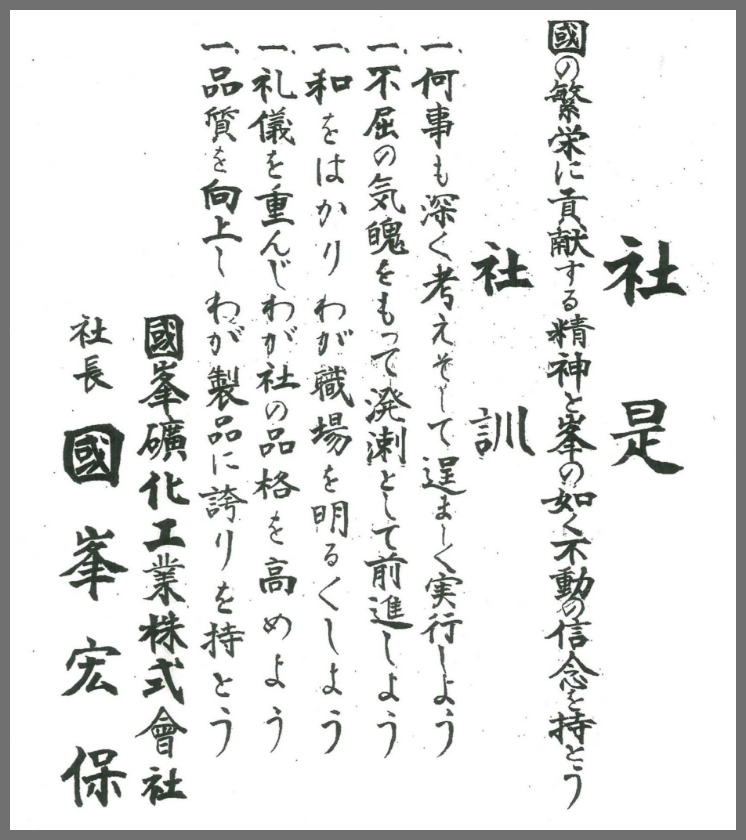 社是
國の繁栄に貢献する精神と峯の如く不動の信念を持とう
社訓
一、何事も深く考えそして逞ましく実行しよう
一、不屈の気魄をもって溌溂として前進しよう
一、和をはかりわが職場を明るくしよう
一、礼儀を重んじわが社の品格を高めよう
一、品質を向上しわが製品に誇りを持とう
國峯礦化工業株式會社
社長 國峯宏保